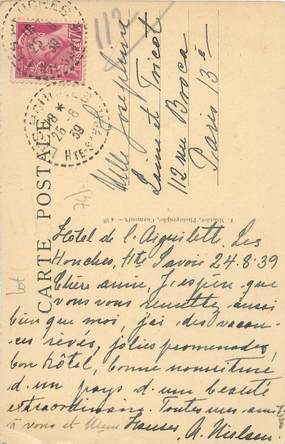 112
Mlle Josephine
Laine et Tricot
112 rue Broca
Paris 13e
CARTE POSTALE
Photographe, Chamonix
Hôtel de l'Aiguilette, Les
Houches, Hte Savoie 24-8-39
Chère amie, J'espère que
vous vous remettez aussi
bien que moi, j'ai des vacan-
ces rêvés, jolies promenades,
bon hôtel, bonne nourriture
d'un pays d'une beauté
extraordinaire. Toutes mes amit-
à vous et Mme Hauser A. Nielsen